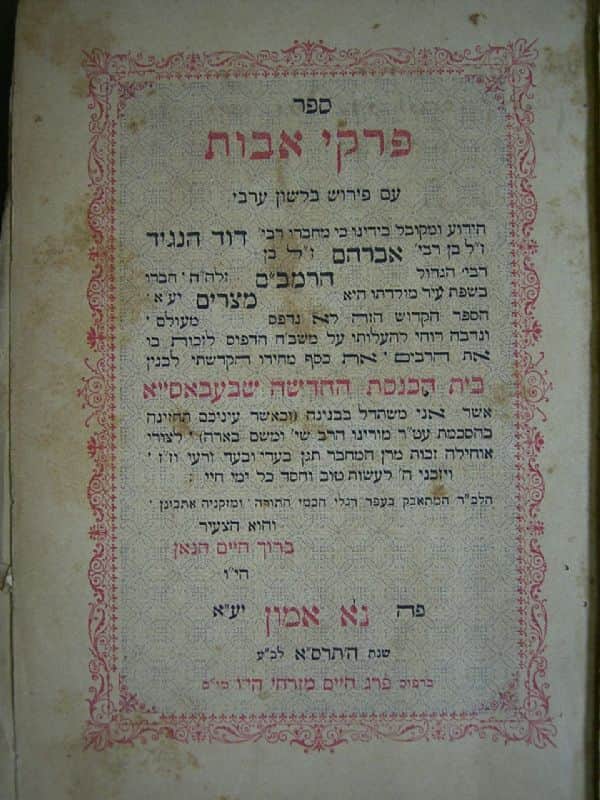 ספר
פרקי אבות
עם פירוש בלשון ערבי
הידוע ומקובל בידינו כי מחברו רבי׳ דוד הנגיד
ז״ל בן רבי׳ אברהם ז״ל בן
רבי׳ הגדול הרמב״ם זלה״ה׳ חברו
בשפת עיר מולדתו היא מצרים יע״א׳
הספר הקדוש הזה לא נדפס מעולם׳
ונדבה רוחי להעלותו על משב״ח הדפוס לזכות בו
את הרבים׳ את כסף מחירו הקדשתי לבנין
בית הכנסת החדשה שבעבאסי״א
אשר אני משתדל בבנינה (וכאשר עיניכם תחזינה
בהסכמת עט״ר מורינו הרב שי׳ ומשם בארה)׳ לצורי
אוחילה זכות מרן המחבר תגן בעדי ובעד זרעי וז״ז׳
ויזכני ה׳ לעשות טוב וחסד כל ימי חיי׳
הלב״ר המתאבק בעפר רגלי חכמי התורה׳ ומזקניה אתבונן׳
והוא הצעיר
ברוך חיים הנאן
הי״ו
פה נא אמון יע״א
שנת התרס״א לב״ע
בדפוס פרג חיים מזרחי הי״ו מו״ס